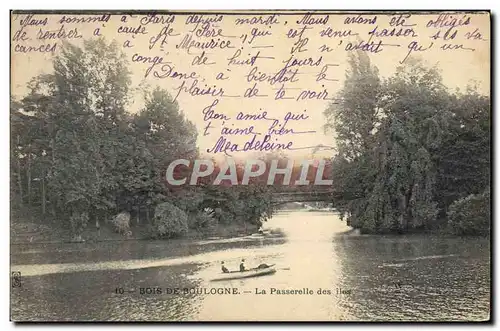 Nous sommes à Paris depuis mardi, Nous avons été obligés
de rentrer à cause de Père, qui est venu passer ses va
cances à St Meurice, il n'avait qu'un
congé de huit jours.
Donc, à bientôt le
plaisir de te voir
Ton amie qui
t'aime bien
Madeleine
CARTOPHILIE
10 - BOIS DE BOULOGNE. - La Passerelle des îles